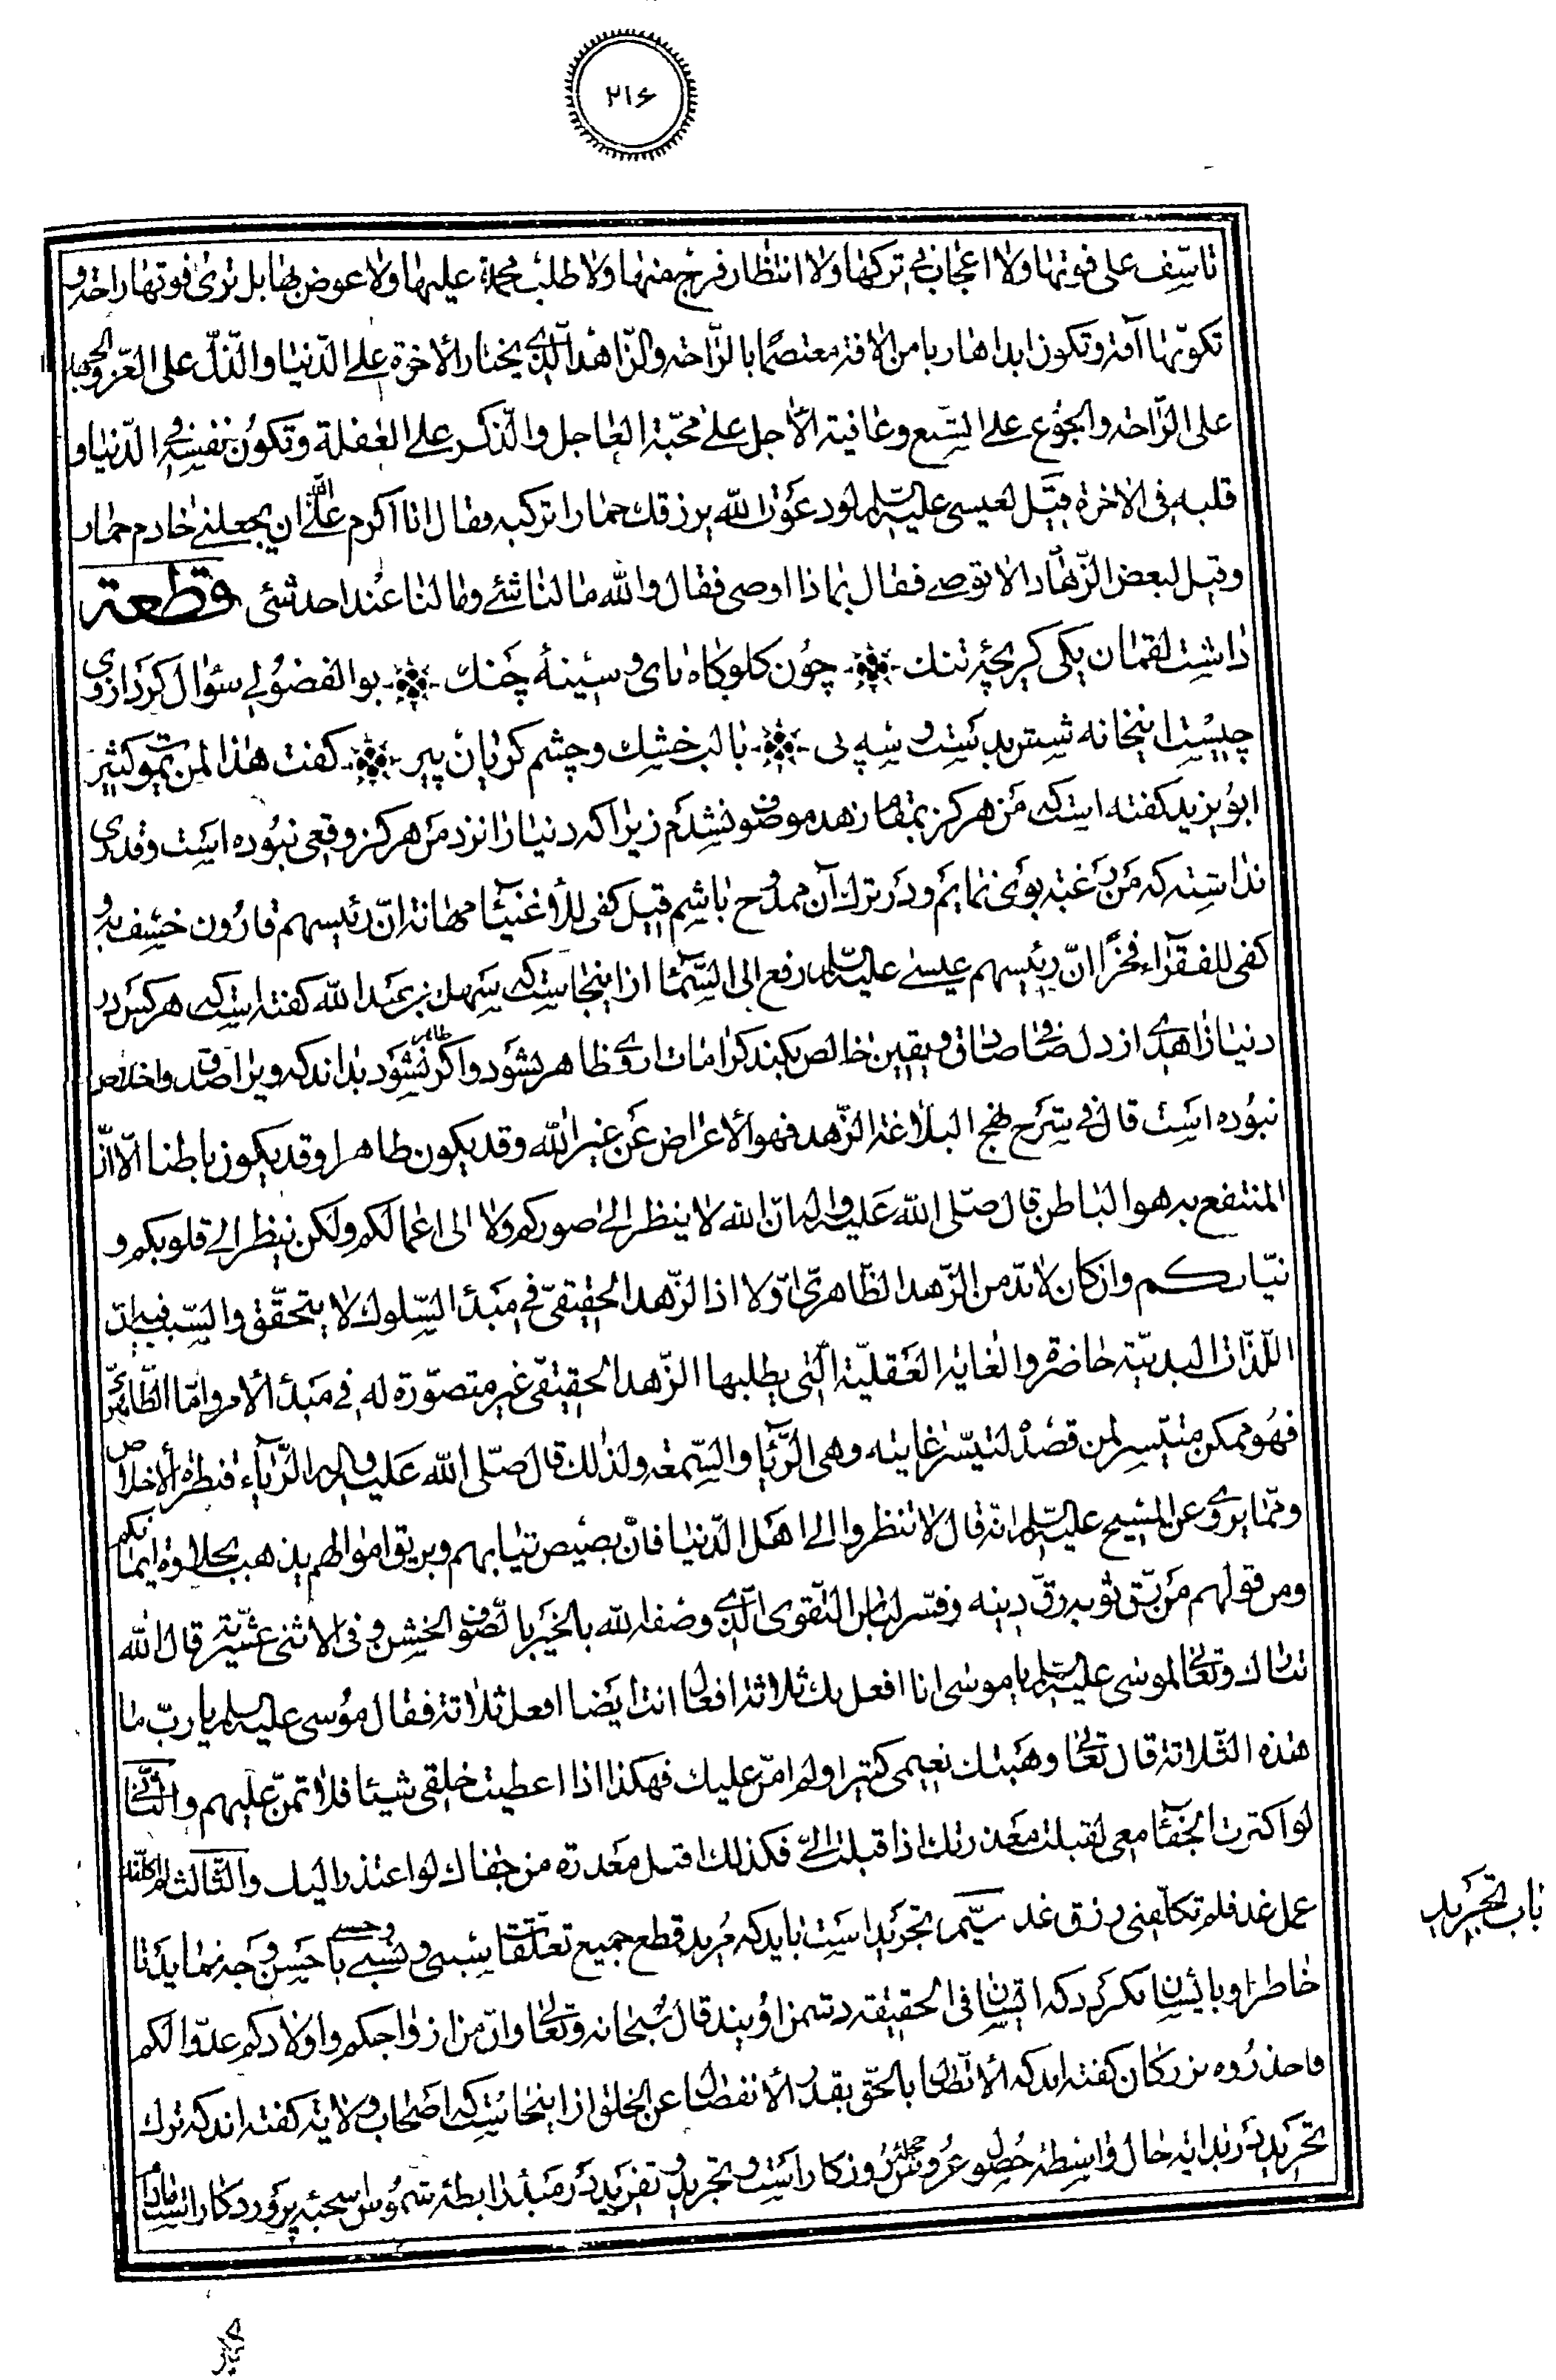 ٢١۶
تاسّف علی فوتها ولا اعجاب فی ترکها ولا انتظار فرج منها ولا طلب محمدة علیها ولا عوض بها بل تری فوتها راحة و
تکونها آفة و تکون ابدا هاربا من الافة معتصما بالرّاحة والزّاهد الّذی یختار الأخرة علی الدّنیا والذّلّ علی العزّ والجهد
علی الرّاحة والجوع علی الشّبع و عافیة الأجل علی محبّة العاجل والذّکر علی الغفلة و تکون نفسه فی الدّنیا و
قلبه فی الاخرة قیل لعیسی علیه السّلم لو دعوت الله یرزقك حمارا ترکبه فقال انا اکرم علی الله ان یجعلنی خادم حمار
وقیل لبعض الزّهّاد الا توصی فقال بماذا اوصی فقال والله ما لنا شئ وما لنا عند احد شئی قطعة
داشت لقمان یکی کریچه تنك چون کلوکاه نای و سینهٔ چنك بوالفضولی سؤال کرد از وی
چیست اینخانه شش بدست و سه پی با لب خشك و چشم کریان پیر کفت هذا لمن یموت کثیر
ابو یزید کفته است که من هرکز بمقام زهد موصوف نشدم زیرا که دنیا را نزد من هرکز وقعی نبوده است و قدری
نداشته که من رغبة بوی نمایم و در ترك آن ممدوح باشم قیل کفی للأغنیآء مهانة انّ رئیسهم قارون خسف به و
کفی للفقرآء فخرا انّ رئیسهم عیسی علیه السّلم رفع الی السّمآء از اینجاست که سهل بن عبد الله کفته است که هر کس در
دنیا زاهدی از دل صافی صادق و یقین خالص بکند کرامات از وی ظاهر شود و اکر ظاهر نشود بداند که ویرا صدق و اخلاص
نبوده است قال فی شرح نهج البلاغة الزّهد فهو ألاعراض عن غیر الله وقد یکون ظاهرا وقد یکون باطنا الّا انّ
المنتفع به هو الباطن قال صلّی الله علیه واله انّ الله لا ینظر الی صورکم ولا الی اعمالکم ولکن ینظر الی قلوبکم و
نیّاتکم وان کان لابدّ من الزّهد الظّاهریّ اوّلا اذ الزّهد الحقیقیّ فی مبدأ السّلوك لا یتحقّق والسّبب فیه انّ
اللّذّات البدنیّة حاضرة والغایة العقلیّة الّتی یطلبها الزّهد الحقیقی غیر متصوّرة له فی مبدأ ألامر وامّا الظّاهریّ
فهو ممکن متیسر لمن قصده لتیسّر غایته وهی الرّیآء والسّمعة ولذلك قال صلّی الله علیه واله الرّیآء قنطرة ألاخلاص
وممّا یروی عن المسیح علیه السّلم انّه قال لا تنظروا الی اهل الدّنیا فانّ بصیص ثیابهم و بریق اموالهم یذهب بحلاوة ایمانکم
ومن قولهم من رقّ ثوبه رقّ دینه وفسّر لباس التّقوی الّذی وصفه الله بالخیر بالصّوف الخشن و فی الاثنی عشریّة قال الله
تبارك وتعالی لموسی علیه السّلم یا موسی انا افعل بك ثلاثة افعال انت ایضا افعل ثلاثة فقال موسی علیه السلم یا ربّ ما
هذه الثّلاثة قال تعالی وهبتك نعیمی کثیرا ولم امنّ علیك فهکذا اذا اعطیت خلقی شیئا فلا تمنّ علیهم والثّانی
لو اکثرت الجفآء معی لقبلت معذرتك اذا قبلت الیّ فکذلك اقبل معذرة من جفاك لو اعتذر الیك والثّالث لم اکلّفك
عمل غد فلم تکلّفنی رزق غد سیّم تجرید است باید که مرید قطع جمیع تعلّقات سببی و نسبی باحسن وجه نماید تا
خاطر او بایشان نکرد که ایشان فی الحقیقه دشمن اویند قال سبحانه وتعالی وانّ من ازواجکم واولادکم عدوّا لکم
فاحذروه بزرکان کفته اند که ألاتّصال بالحقّ بقدر ألانفصال عن الخلق از اینجاست که اصحاب ولایة کفته اند که ترك
تجرید در بدایة حال واسطهٔ حصول عروس روزکار است و تجرید و تفرید در مبدأ رابطهٔ پرورد کار
باب تجرید